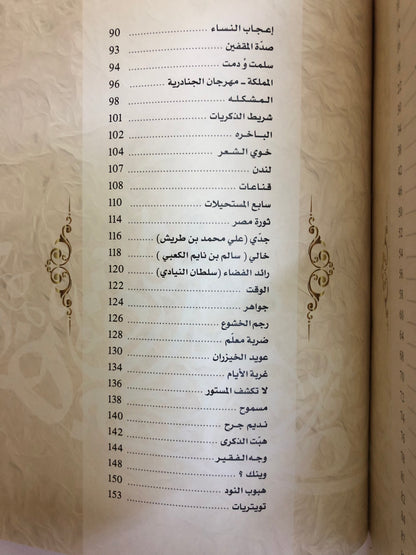 إعجاب النساء ........ 90
صدّة المقفين ........ 93
سلمت وُ دمت ........ 94
المملكة ـ مهرجان الجنادرية ........ 96
المشكله ........ 98
شريط الذكريات ........ 101
الباخره ........ 102
خوي الشعر ........ 104
لندن ........ 107
قناعات ........ 108
سابع المستحيلات ........ 110
ثورة مصر ........ 114
جدّي (علي محمد بن طريش) ........ 116
خالي ( سالم بن نايم الكعبي ) ........ 118
رائد الفضاء (سلطان النيادي) ........ 120
الوقت ........ 122
جواهر ........ 124
رجم الخشوع ........ 126
ضربة معلّم ........ 128
عويد الخيزران ........ 130
غربة الأيام ........ 134
لا تكشف المستور ........ 136
مسموح ........ 138
نديم جرح ........ 140
هبّت الذكرى ........ 142
وجه الفقير ........ 144
وينك ؟ ........ 148
هبوب النود ........ 150
تويتريات ........ 153